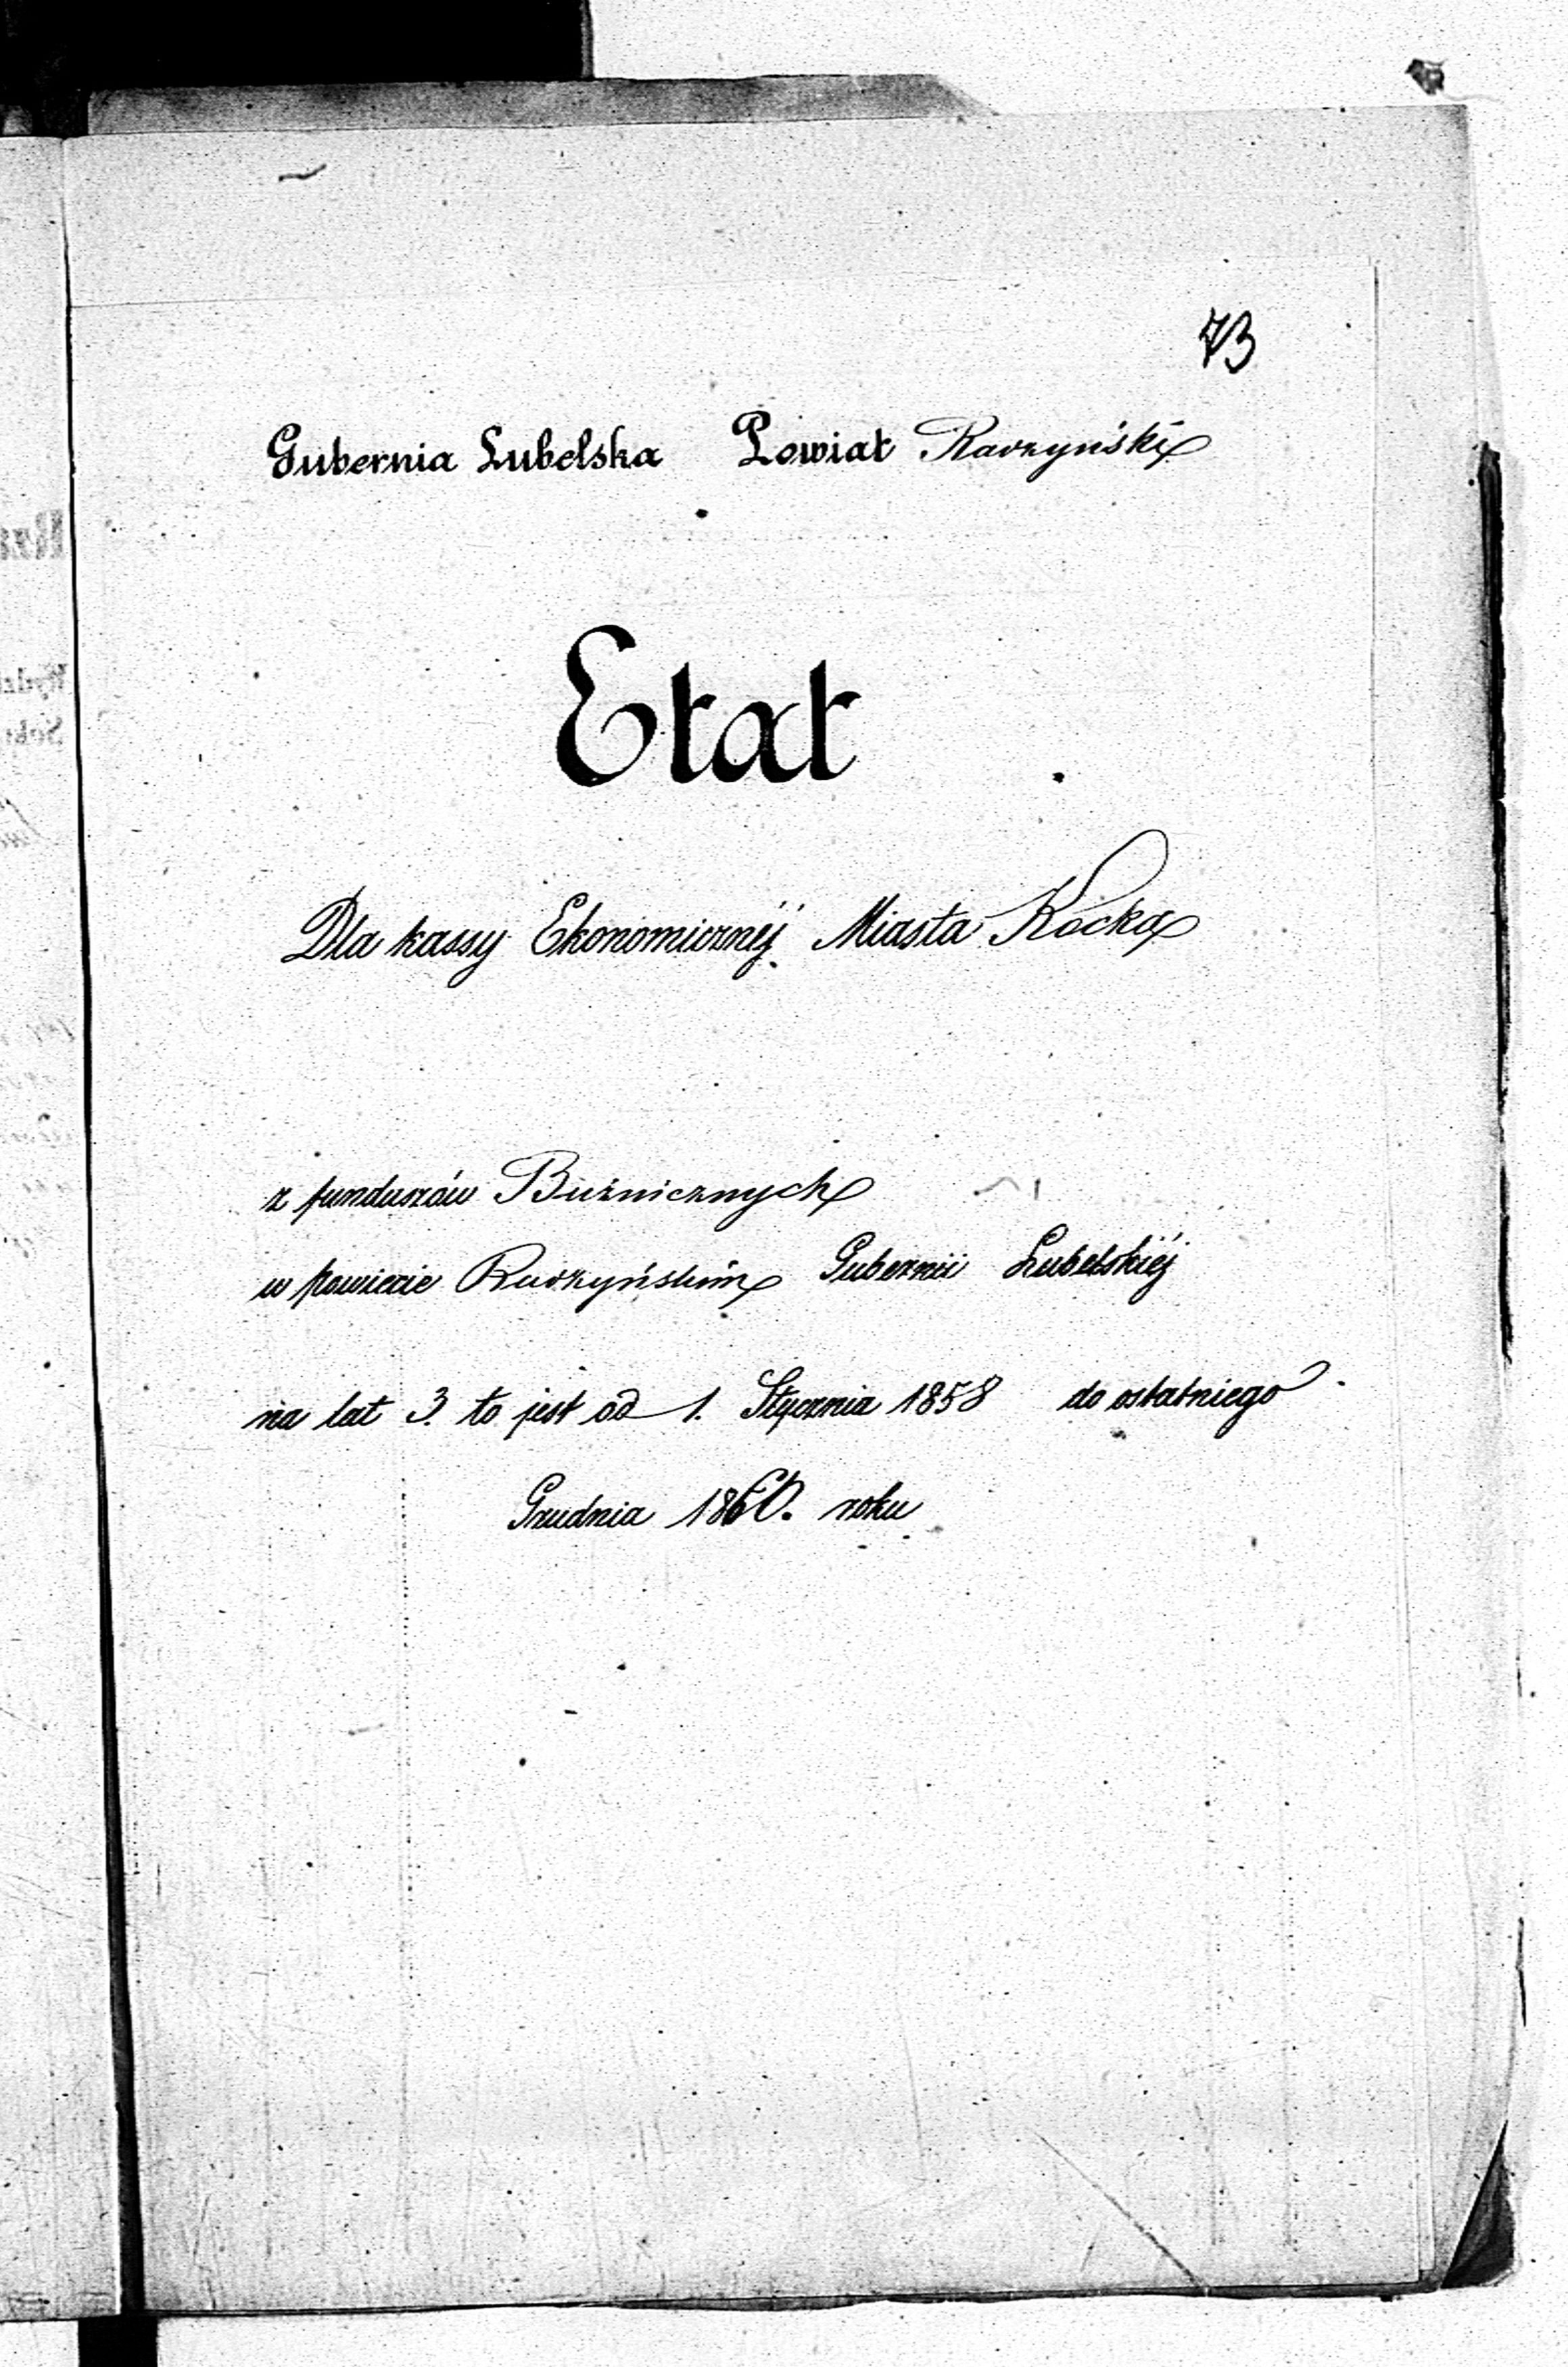 73
Gubernia Lubelska Powiat Radzyński
Etat
Dla kassy Ekonomicznéj Miasta Kocka
z funduszów Bużnicznych
w powiecie Radzyńskim Gubernii Lubelskiéj
na lat 3. to jest od 1. Stycznia 1858 do ostatniego
Grudnia 1860. roku